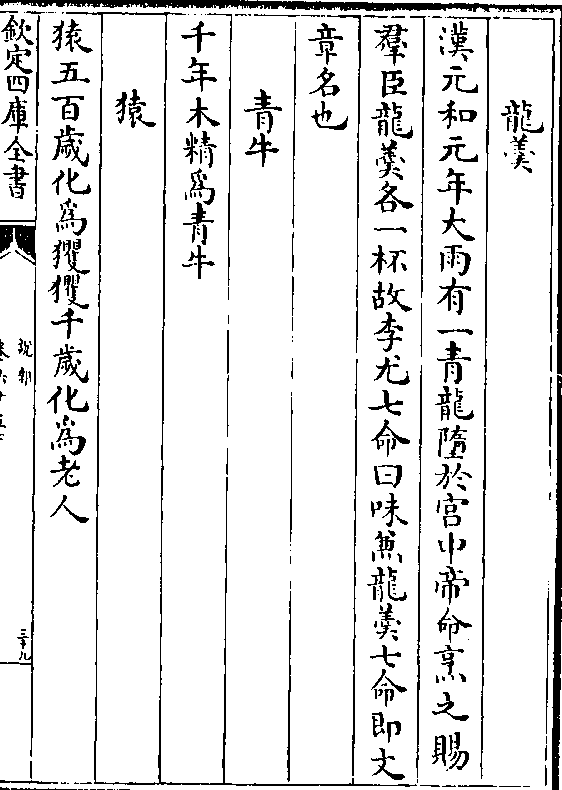 龍羹
漢元和元年大雨有一青龍墮於宫中帝命烹之賜
羣臣龍羹各一杯故李尤七命曰味兼龍羹七命即文
章名也
青牛
千年木精爲青牛
猿
猿五百歲化爲玃玃千歲化爲老人
欽定四庫全書
說郛
三十九